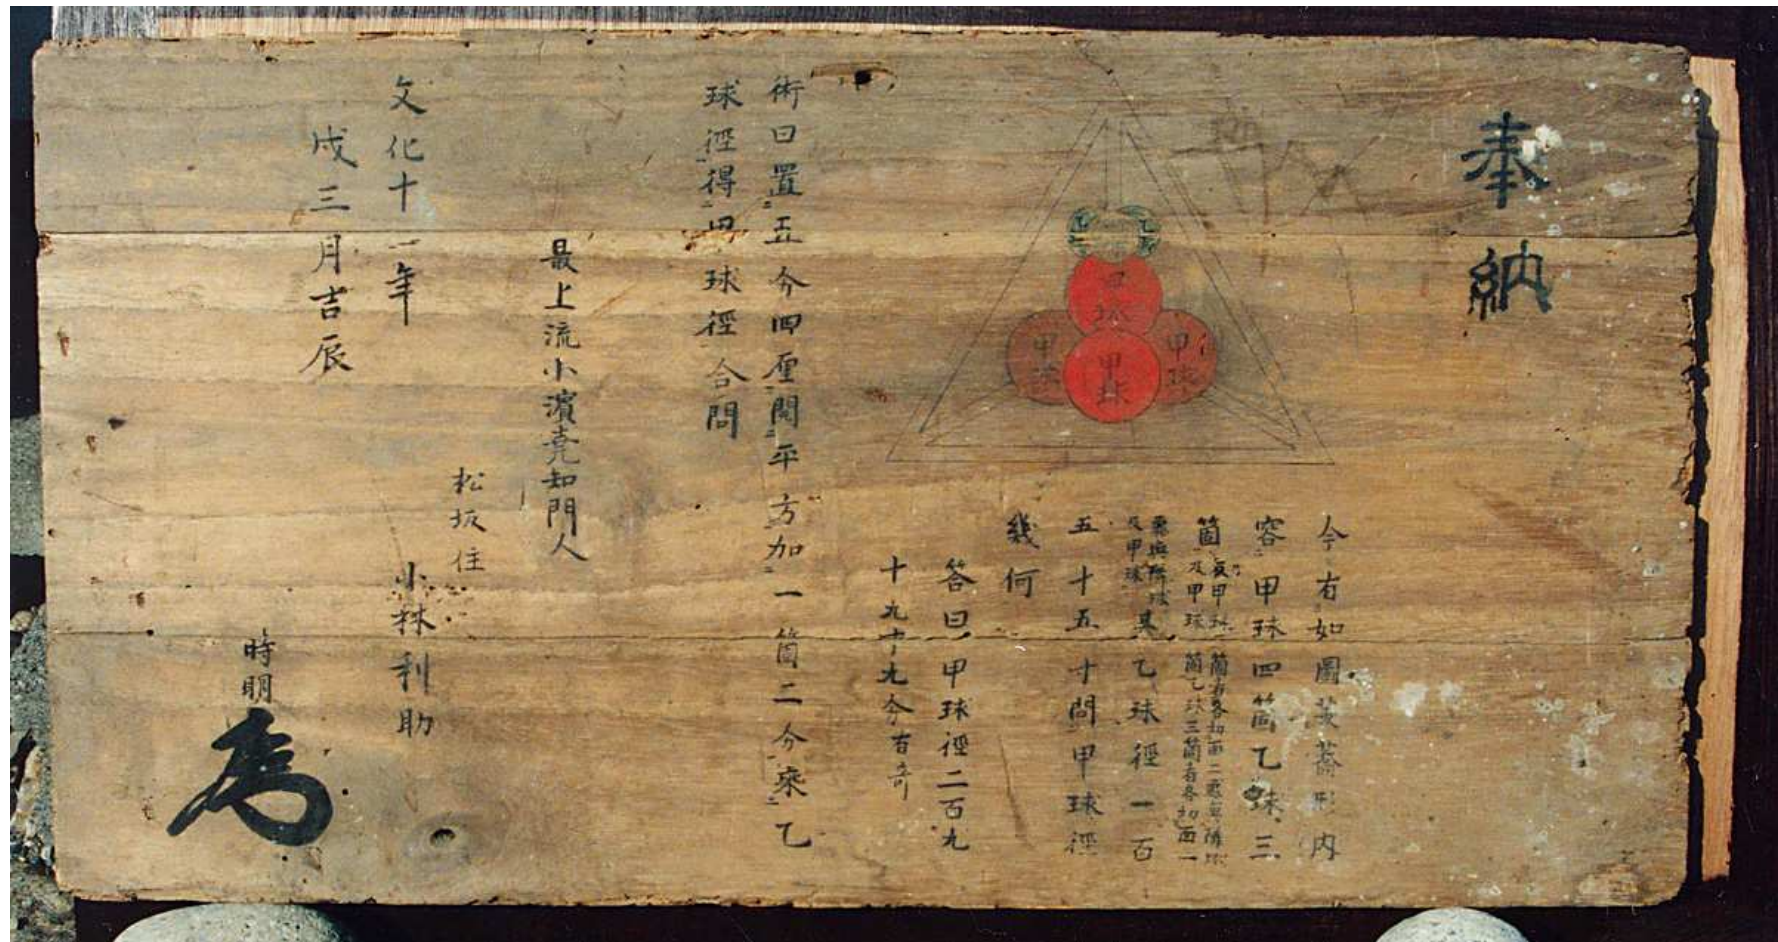 奉納
甲球
甲球
甲球
甲球
今有如圖蕎形内
容甲球四箇乙球三
箇
及甲球
箇乙球三箇者各切面一
及甲球其乙球徑一百
五十五寸問甲球徑
幾何
答曰甲球徑二百九
十九寸九分有奇
術曰置五分四厘開平方加一箇二分乘乙
球徑得甲球徑合問
最上流小濱堯知門人
松坂住
小林利助
時明
文化十一年
戌三月吉辰